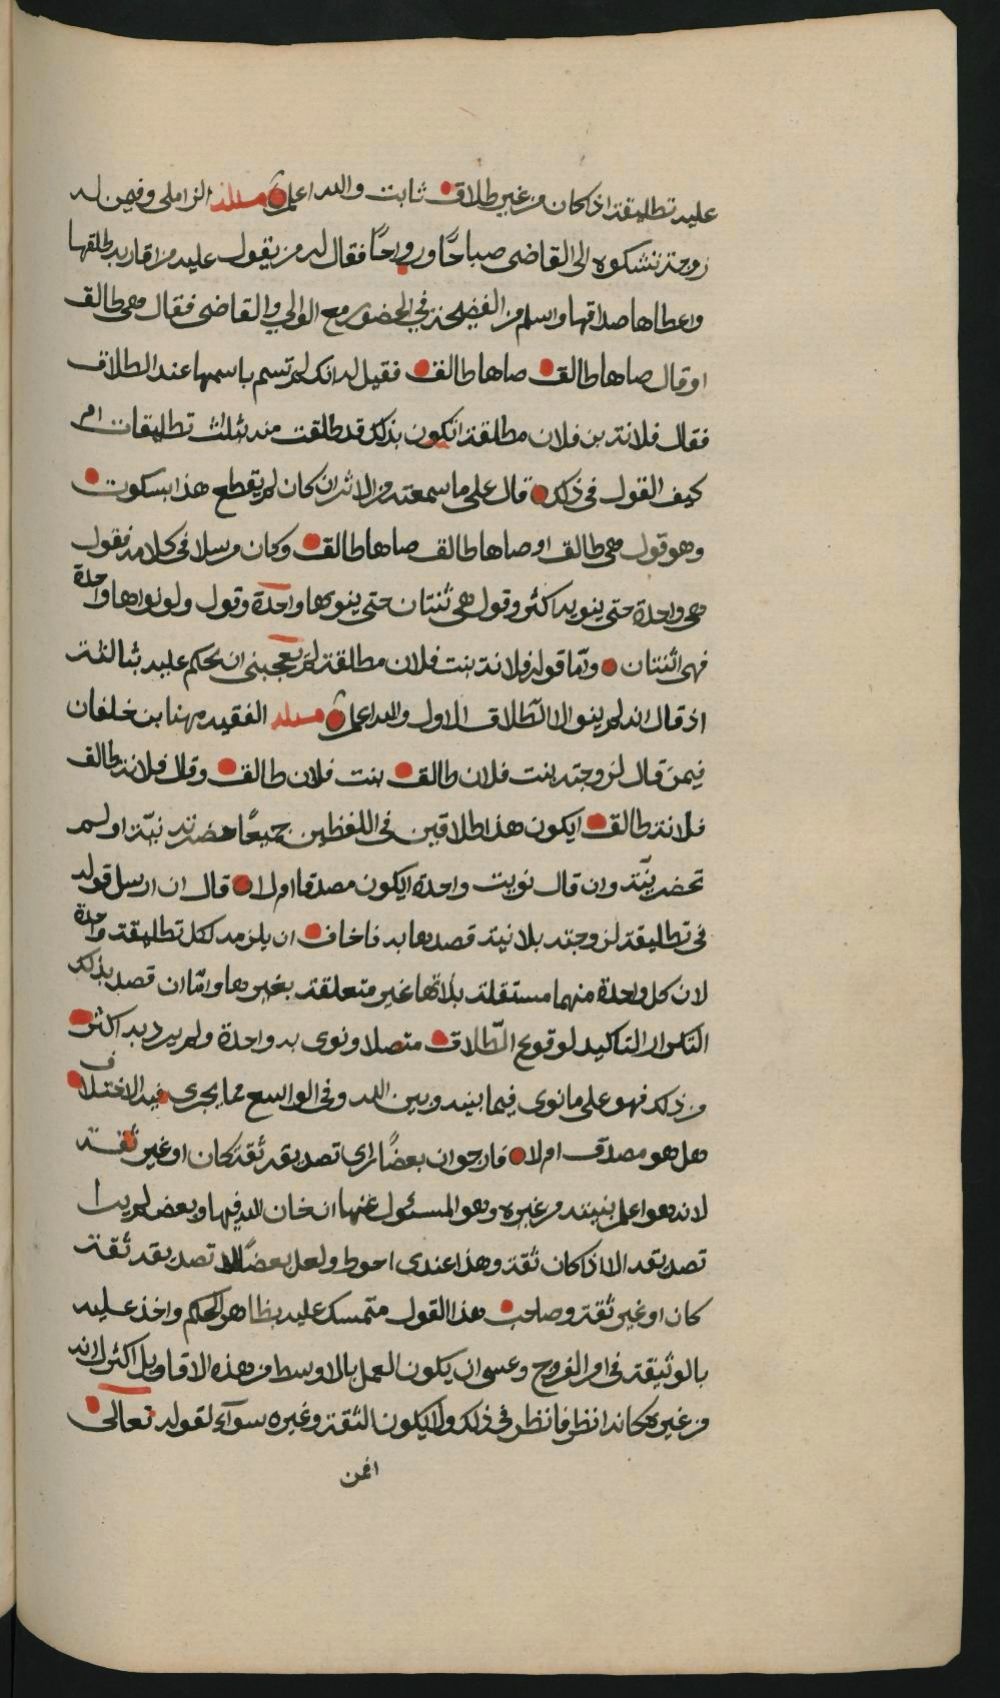 عليه تطليقة اذا كان من غير طلاق ثابت والله اعلم مسئلة الزاملي وفيمن له
زوجة تشكوه الى القاضي صباحًا ورواحًا فقال له من يقول عليه من اقاربه طلقها
واعطاها صداقها واسلم من الفضيحة في الحضور مع الوالي والقاضي فقال هي طالق
او قال صاها طالق صاها طالق فقيل له انك لم تسم باسمها عند الطلاق
فقال فلانة بن فلان مطلقة اتكون بذلك قد طلقت منه بثلث تطليقات ام
كيف القول في ذلك قال على ما سمعته من الاثر ان كان لم يقطع هذا بسكوت
وهو قول هي طالق او صاها طالق صاها طالق وكان مرسلا في كلامه فقول
هي واحدة حتى ينوي به اكثر وقول هي ثنتان حتى ينويها واحدة وقول ولو نواها واحدة
فهي اثنتان واما قوله فلانة بنت فلان مطلقة لم يعجبني ان يحكم عليه بثالثة
اذ قال انه لم ينو الا الطلاق الاول والله اعلم مسئلة الفقيه مهنا بن خلفان
فيمن قال لزوجته بنت فلان طالق بنت فلان طالق وقال فلانة طالق
فلانة طالق ايكون هذا طلاقين في اللفظين جميعًا حضرته نيّة او لم
تحضر نيّة وان قال نويت واحدة ايكون مصدقا ام لا قال ان ارسل قوله
في تطليقة لزوجته بلا نية قصدها به فاخاف ان يلزمه لكل تطليقة واحدة
لان كل واحدة منهما مستقلة بذاتها غير متعلقة بغيرها وامّا ان قصد بذلك
التكرار التاكيد لوقوع الطّلاق متصلا ونوى به واحدة ولم يرد به اكثر
من ذلك فهو على ما نوى فيما بينه وبين الله وفي الواسع مما يجري فيه الاختلاف
هل هو مصدق ام لا فارجو ان بعضًا يرى تصديقه ثقة كان او غير ثقة
لانه هو اعلم بنيته من غيره وهو المسئول عنها ان خان الله فيها وبعض لم ير
تصديقه الا اذا كان ثقة وهذا عندي احوط ولعل بعضًا لا تصديقه ثقة
كان او غير ثقة وصاحب هذا القول متمسك عليه بظاهر الحكم واخذ عليه
بالوثيقة في امر الفروج وعسى ان يكون العمل بالاوسط من هذه الاقاويل اكثر لانه
من غيره كانه انظر فانظر في ذلك ولا يكون الثقة وغيره سوآء لقوله تعالى
افمن